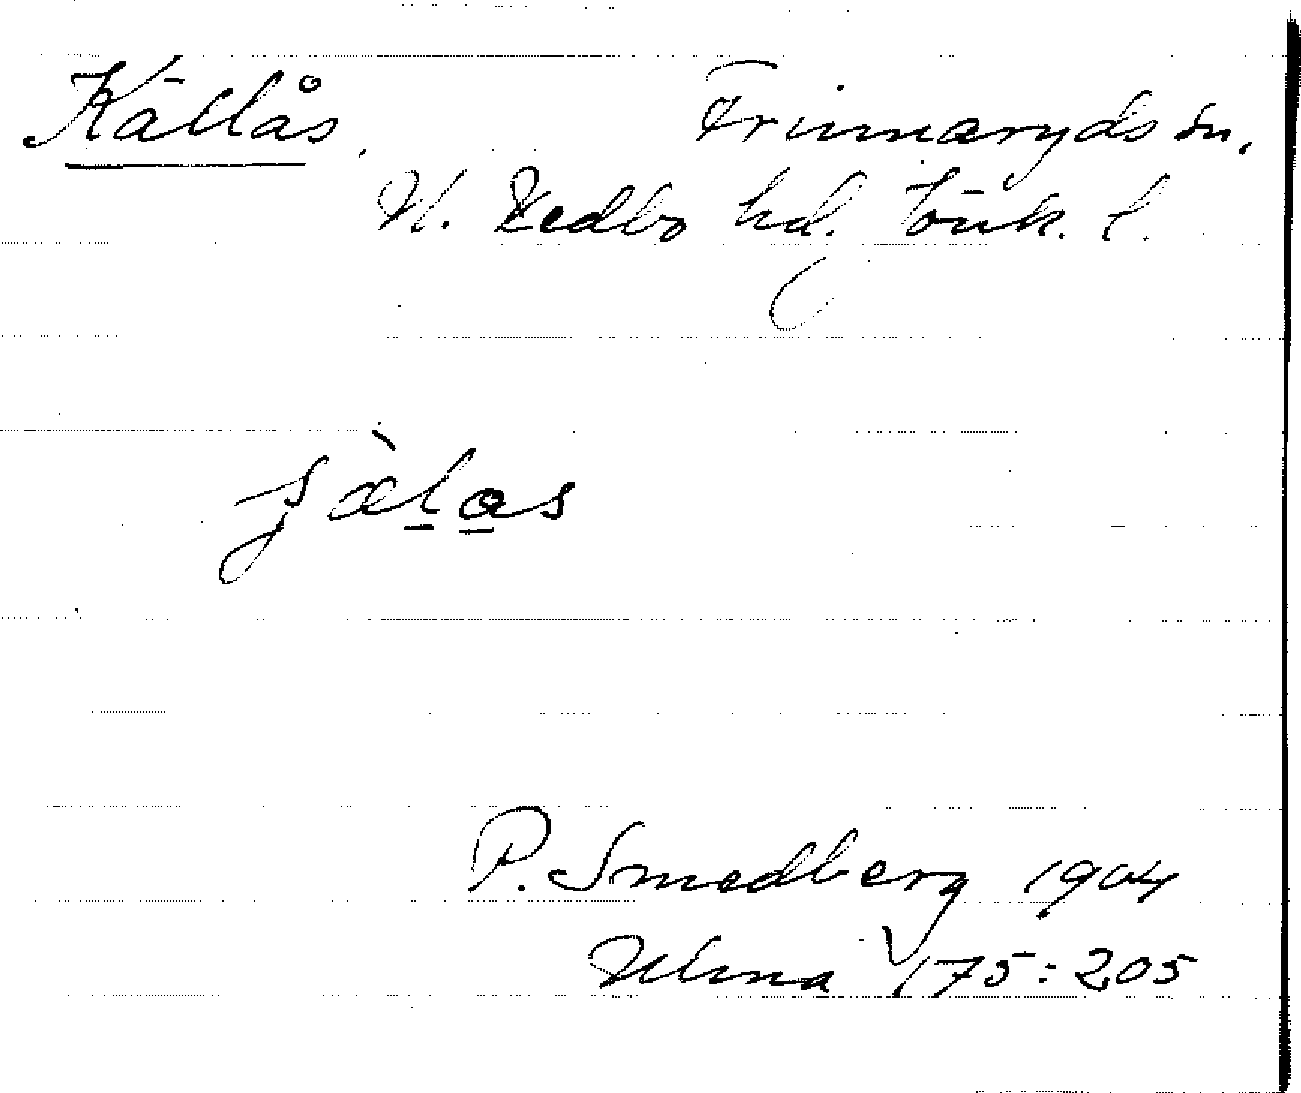 Källås. Frinnaryds sn,
N. Vedbo hd. Jönk. l.
ʃæ̀l̲a̲s
P. Smedberg 1904
Ulma 175:205